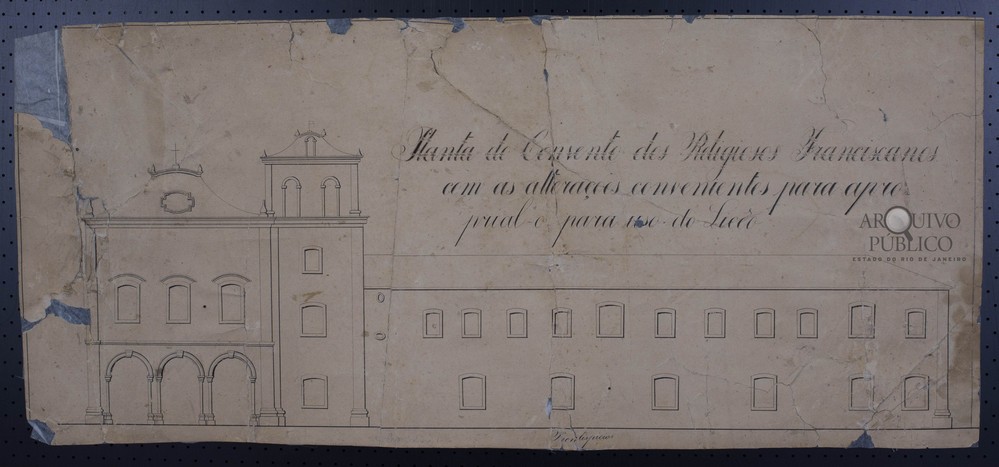 Planta do Convento dos Religiosos Franciscanos
com as alterações convenientes para apro-
prial-o para uso do Liceo
ARQUIVO
PÚBLICO
ESTADO DO RIO DE JANEIRO